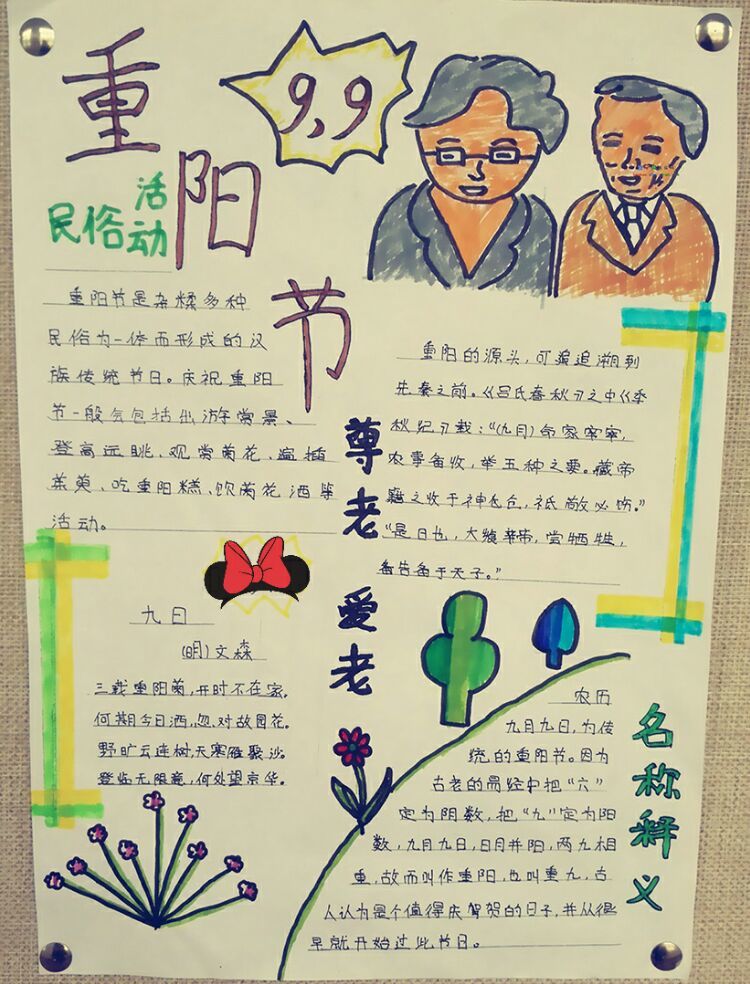 重阳节
9,9
民俗活动
重阳节是杂糅多种
民俗为一体而形成的汉
族传统节日。庆祝重阳
节一般会包括出游赏景、
登高远眺、观赏菊花、遍插
茱萸、吃重阳糕、饮菊花酒等
活动。
尊老爱老
重阳的源头,可追追溯到
先秦之前。《吕氏春秋》之中《季
秋纪》载:“(九月)命家宰,
农事备收,举五种之要。藏帝
籍之收于神仓,祗敬必饬。”
“是日也,大飨帝,尝牺牲,
备告备于天子。”
九日
(明)文森
三载重阳菊,开时不在家。
何期今日酒,忽对故园花。
野旷云连树,天寒雁聚沙。
登临无限意,何处望京华。
名称释义
农历
九月九日,为传
统的重阳节。因为
古老的易经中把“六”
定为阴数,把“九”定为阳
数,九月九日,日月并阳,两九相
重,故而叫作重阳,也叫重九,古
人认为是个值得庆贺贺的日子,并从很
早就开始过此节日。